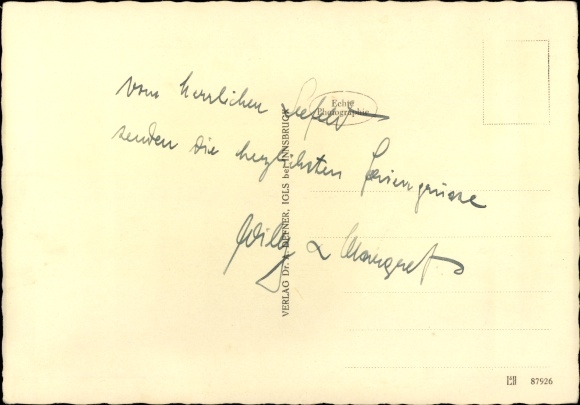 vom herrlichen Seefeld
senden die herzlichsten Feriengrüsse
Willy & Margret
Echte
Photographie
VERLAG Dr. A. DEFNER, IGLS bei INNSBRUCK
87926